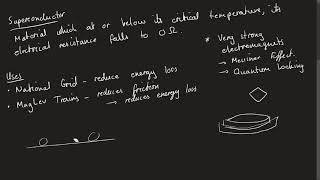 Superconductor
Material which at or below its critical temperature, its
electrical resistance falls to 0Ω.
Uses
• National Grid - reduce energy loss
• MagLev Trains - reduces friction
→ reduces energy loss
* Very strong
electromagnets
→ Meissner Effect.
→ Quantum Locking